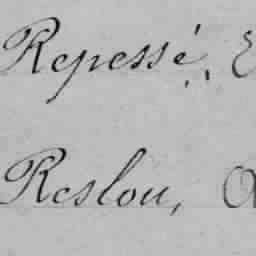 Repessé, E
Reslou, A